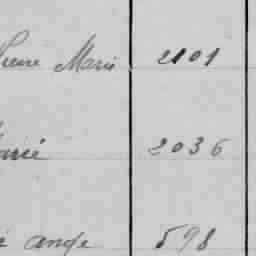 Pierre Marie 2101
2036
ange 598